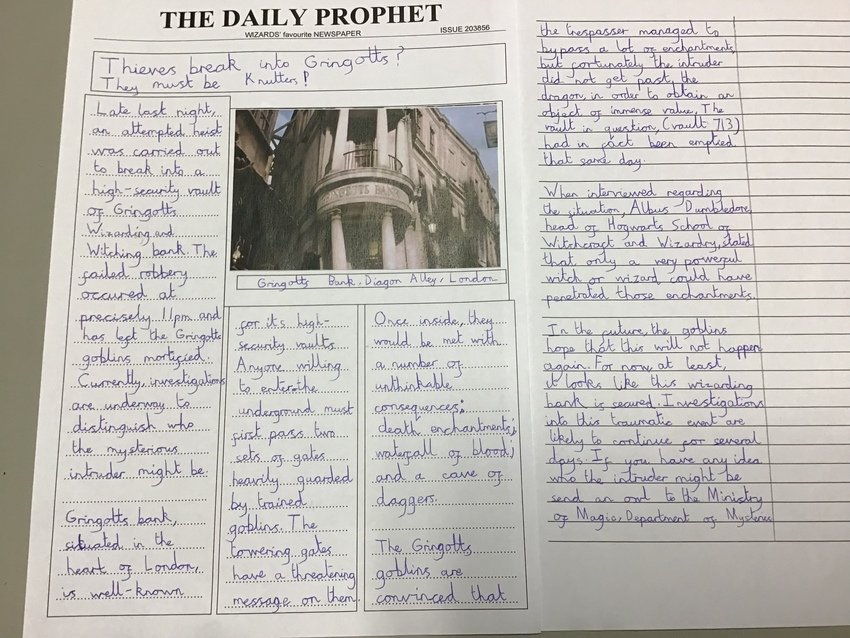 THE DAILY PROPHET
WIZARDS' favourite NEWSPAPER
ISSUE 203856
Thieves break into Gringotts?
They must be Knutters!
Late last night,
an attempted heist
was carried out
to break into a
high-security vault
of Gringotts
Wizarding and
Witching bank. The
failed robbery
occured at
precisely 11pm and
has left the Gringotts
goblins mortified.
Currently investigations
are underway to
distinguish who
the mysterious
intruder might be.
Gringotts bank,
situated in the
heart of London,
is well-known
GRINGOTTS BANK
Gringotts Bank, Diagon Alley, London
for its high-
security vaults.
Anyone willing
to enter the
underground must
first pass two
sets of gates
heavily guarded
by trained
goblins. The
towering gates
have a threatening
message on them.
Once inside, they
would be met with
a number of
unthinkable
consequences:
death enchantments;
waterfall of blood;
and a cave of
daggers.
The Gringotts
goblins are
convinced that
the trespasser managed to
bypass a lot of enchantments
but fortunately the intruder
did not get past the
dragon in order to obtain an
object of immense value. The
vault in question, (vault 713)
had in fact been emptied
that same day.
When interviewed regarding
the situation, Albus Dumbledore,
head of Hogwarts School of
Witchcraft and Wizardry, stated
that only a very powerful
witch or wizard could have
penetrated those enchantments.
In the future, the goblins
hope that this will not happen
again. For now at least,
it looks like this wizarding
bank is secured. Investigations
into this traumatic event are
likely to continue for several
days. If you have any idea
who the intruder might be
send an owl to the Ministry
of Magic, Department of Mysteries